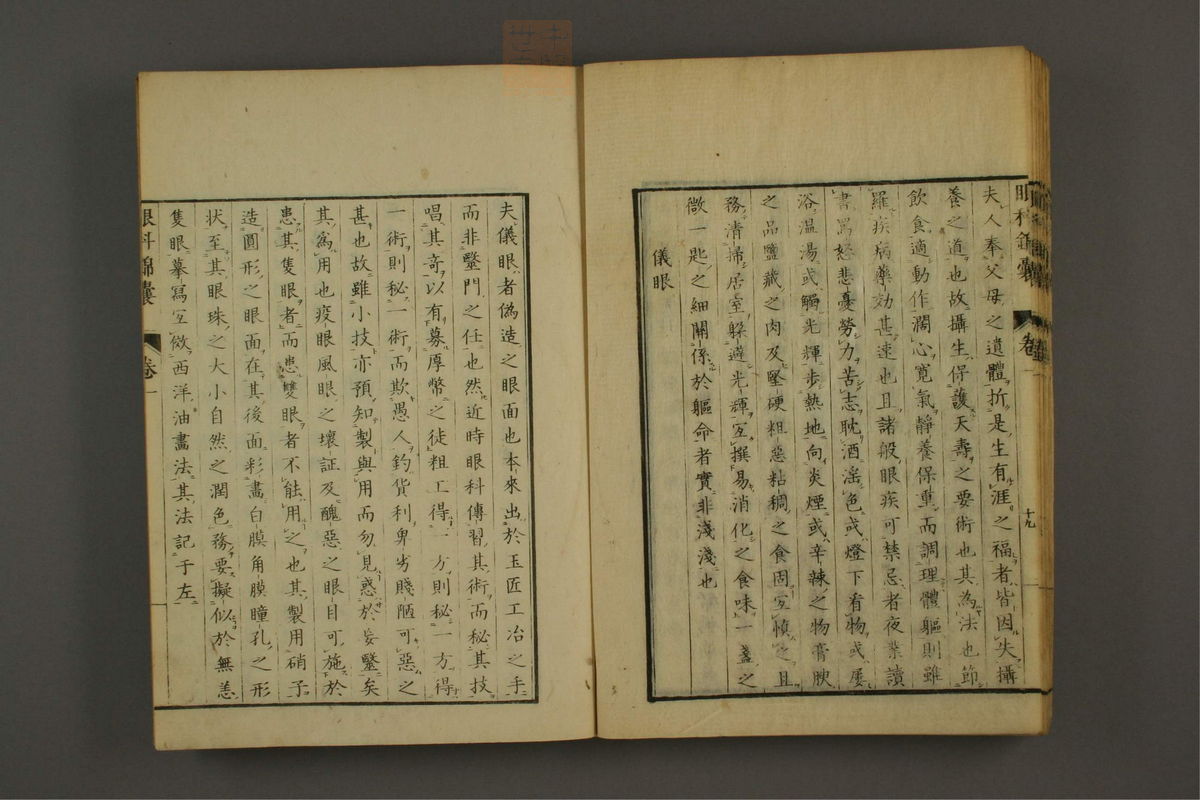 眼科錦囊 卷一 十九
夫人奉父母之遺體折是生有涯之福者皆因失攝
養之道也故攝生保護天壽之要術也其為法也節
飲食適動作濶心寬氣靜養保重而調理體軀則雖
羅疾病藥効甚速也且諸般眼疾可禁忌者夜業讀
書罵怒悲憂勞力苦志耽酒淫色或燈下看物或屡
浴温湯或觸光輝步熱地向炎煙或辛辣之物膏腴
之品鹽藏之肉及堅硬粗惡粘稠之食固宜慎之且
務清掃居室躲避光輝宜撰易消化之食味一盞之
微一匙之細關係於軀命者實非淺淺也
儀眼
夫儀眼者偽造之眼面也本來出於玉匠工冶之手
而非毉門之任也然近時眼科傳習其術而秘其技
唱其竒以有募厚幣之徒粗工得一方則秘一方得
一術則秘一術而欺愚人釣貨利卑劣賤陋可惡之
甚也故雖小技亦預知製與用而勿見惑於妄毉矣
其為用也疫眼風眼之壞証及醜惡之眼目可施於
患其隻眼者而患雙眼者不能用之也其製用硝子
造圓形之眼面在其後面彩畫白膜角膜瞳孔之形
状至其眼珠之大小自然之潤色務要擬似於無恙
隻眼摹寫宜倣西洋油畫法其法記于左
眼科錦囊 卷一